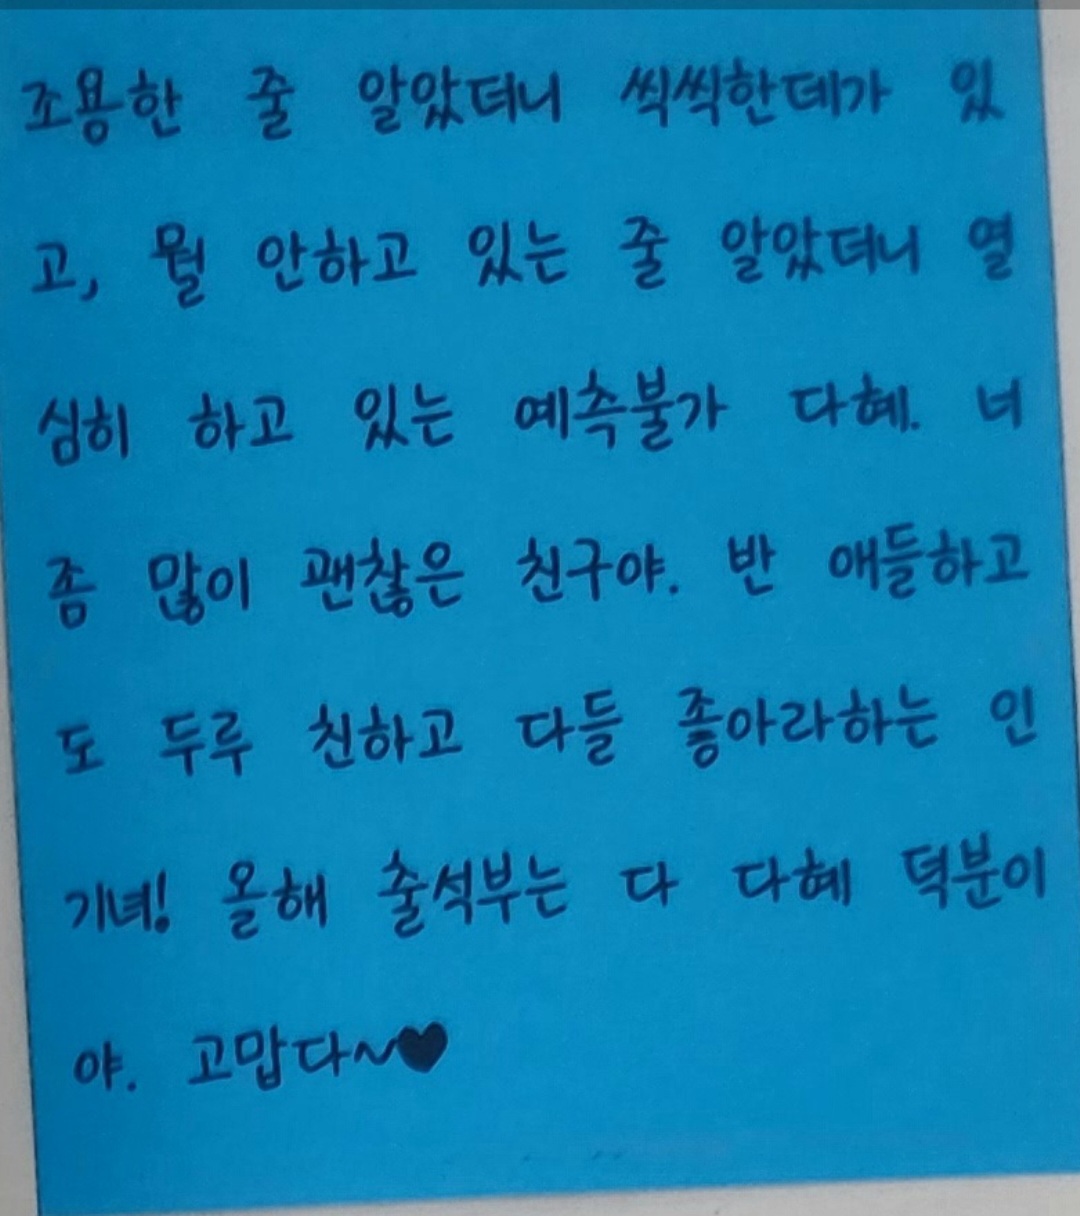 조용한 줄 알았더니 씩씩한데가 있
고, 뭘 안하고 있는 줄 알았더니 열
심히 하고 있는 예측불가 다혜. 너
좀 많이 괜찮은 친구야. 반 애들하고
도 두루 친하고 다들 좋아라하는 인
기녀! 올해 출석부는 다 다혜 덕분이
야. 고맙다~♥